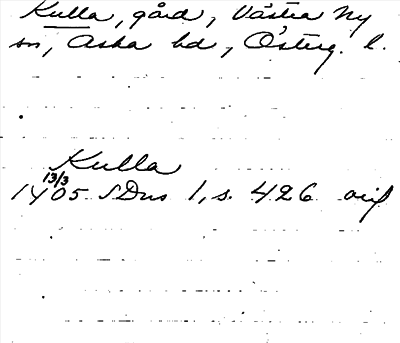 Kulla, gård, Västra Ny
sn, Aska hd, Österg. l.
Kulla
13/3
1405 SDns 1, s. 426 orig